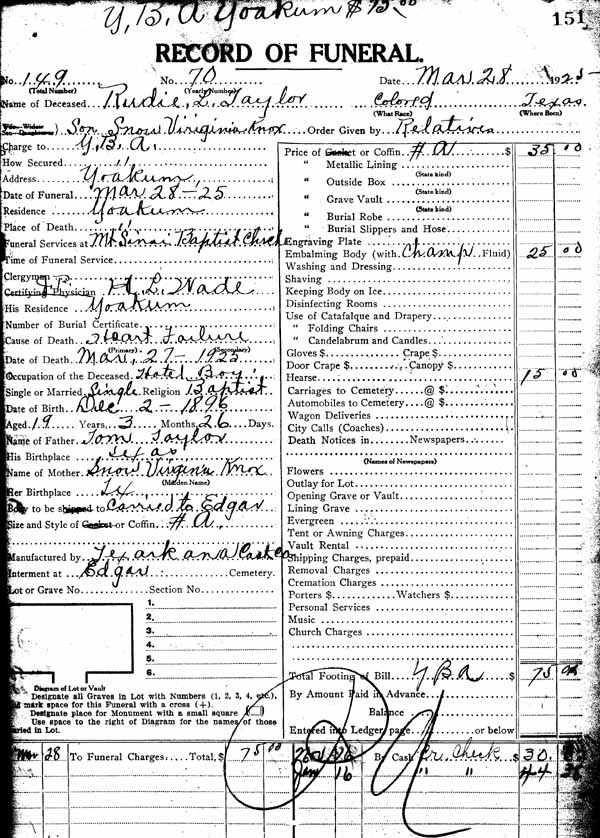 Y. B. A Yoakum $75.00
151
RECORD OF FUNERAL.
No. 149 No. 70 Date Mar 28 1925
(Total Number) (Yearly Number)
Name of Deceased Rudie, L. Taylor Colored Texas
(What Race) (Where Born)
Son Snow Virginia Knox Order Given by Relatives
Charge to Y. B. A.
How Secured "
Address Yoakum
Date of Funeral Mar 28-25
Residence Yoakum
Place of Death "
Funeral Services at Mt Sinai Baptist Church
Time of Funeral Service
Clergyman
Certifying Physician H. L. Wade
His Residence Yoakum
Number of Burial Certificate
Cause of Death Heart Failure
(Primary) (Secondary)
Date of Death Mar, 27-1925
Occupation of the Deceased Hotel Boy
Single or Married Single Religion Baptist
Date of Birth Dec 2-1896
Aged 19 Years, 3 Months, 26 Days.
Name of Father Tom Taylor
His Birthplace Texas
Name of Mother Snow Virginia Knox
(Maiden Name)
Her Birthplace Tex
Body to be shipped to Carried to Edgar
Size and Style of Casket or Coffin #A.
Manufactured by Texarkana Casket Co
Interment at Edgar Cemetery.
Lot or Grave No. Section No.
1.
2.
3.
4.
5.
6.
Diagram of Lot or Vault
Designate all Graves in Lot with Numbers (1, 2, 3, 4, etc.),
and mark space for this Funeral with a cross (+).
Designate place for Monument with a small square
Use space to the right of Diagram for the names of those
buried in Lot.
Price of Casket or Coffin #A $ 35 00
" Metallic Lining
(State kind)
" Outside Box
(State kind)
" Grave Vault
(State kind)
" Burial Robe
" Burial Slippers and Hose
Engraving Plate
Embalming Body (with Champ Fluid) 25 00
Washing and Dressing
Shaving
Keeping Body on Ice
Disinfecting Rooms
Use of Catafalque and Drapery
" Folding Chairs
" Candelabrum and Candles
Gloves $ Crape $
Door Crape $ Canopy $
Hearse 15 00
Carriages to Cemetery @ $
Automobiles to Cemetery @ $
Wagon Deliveries
City Calls (Coaches)
Death Notices in Newspapers
(Names of Newspapers)
Flowers
Outlay for Lot
Opening Grave or Vault
Lining Grave
Evergreen
Tent or Awning Charges
Vault Rental
Shipping Charges, prepaid
Removal Charges
Cremation Charges
Porters $ Watchers $
Personal Services
Music
Church Charges
Total Footing of Bill Y B A $ 75 00
By Amount Paid in Advance
Balance
Entered into Ledger page or below
Mar 28 To Funeral Charges Total, $ 75 00 By Cash Cr. Check $ 30.
Jan 16 " " 44